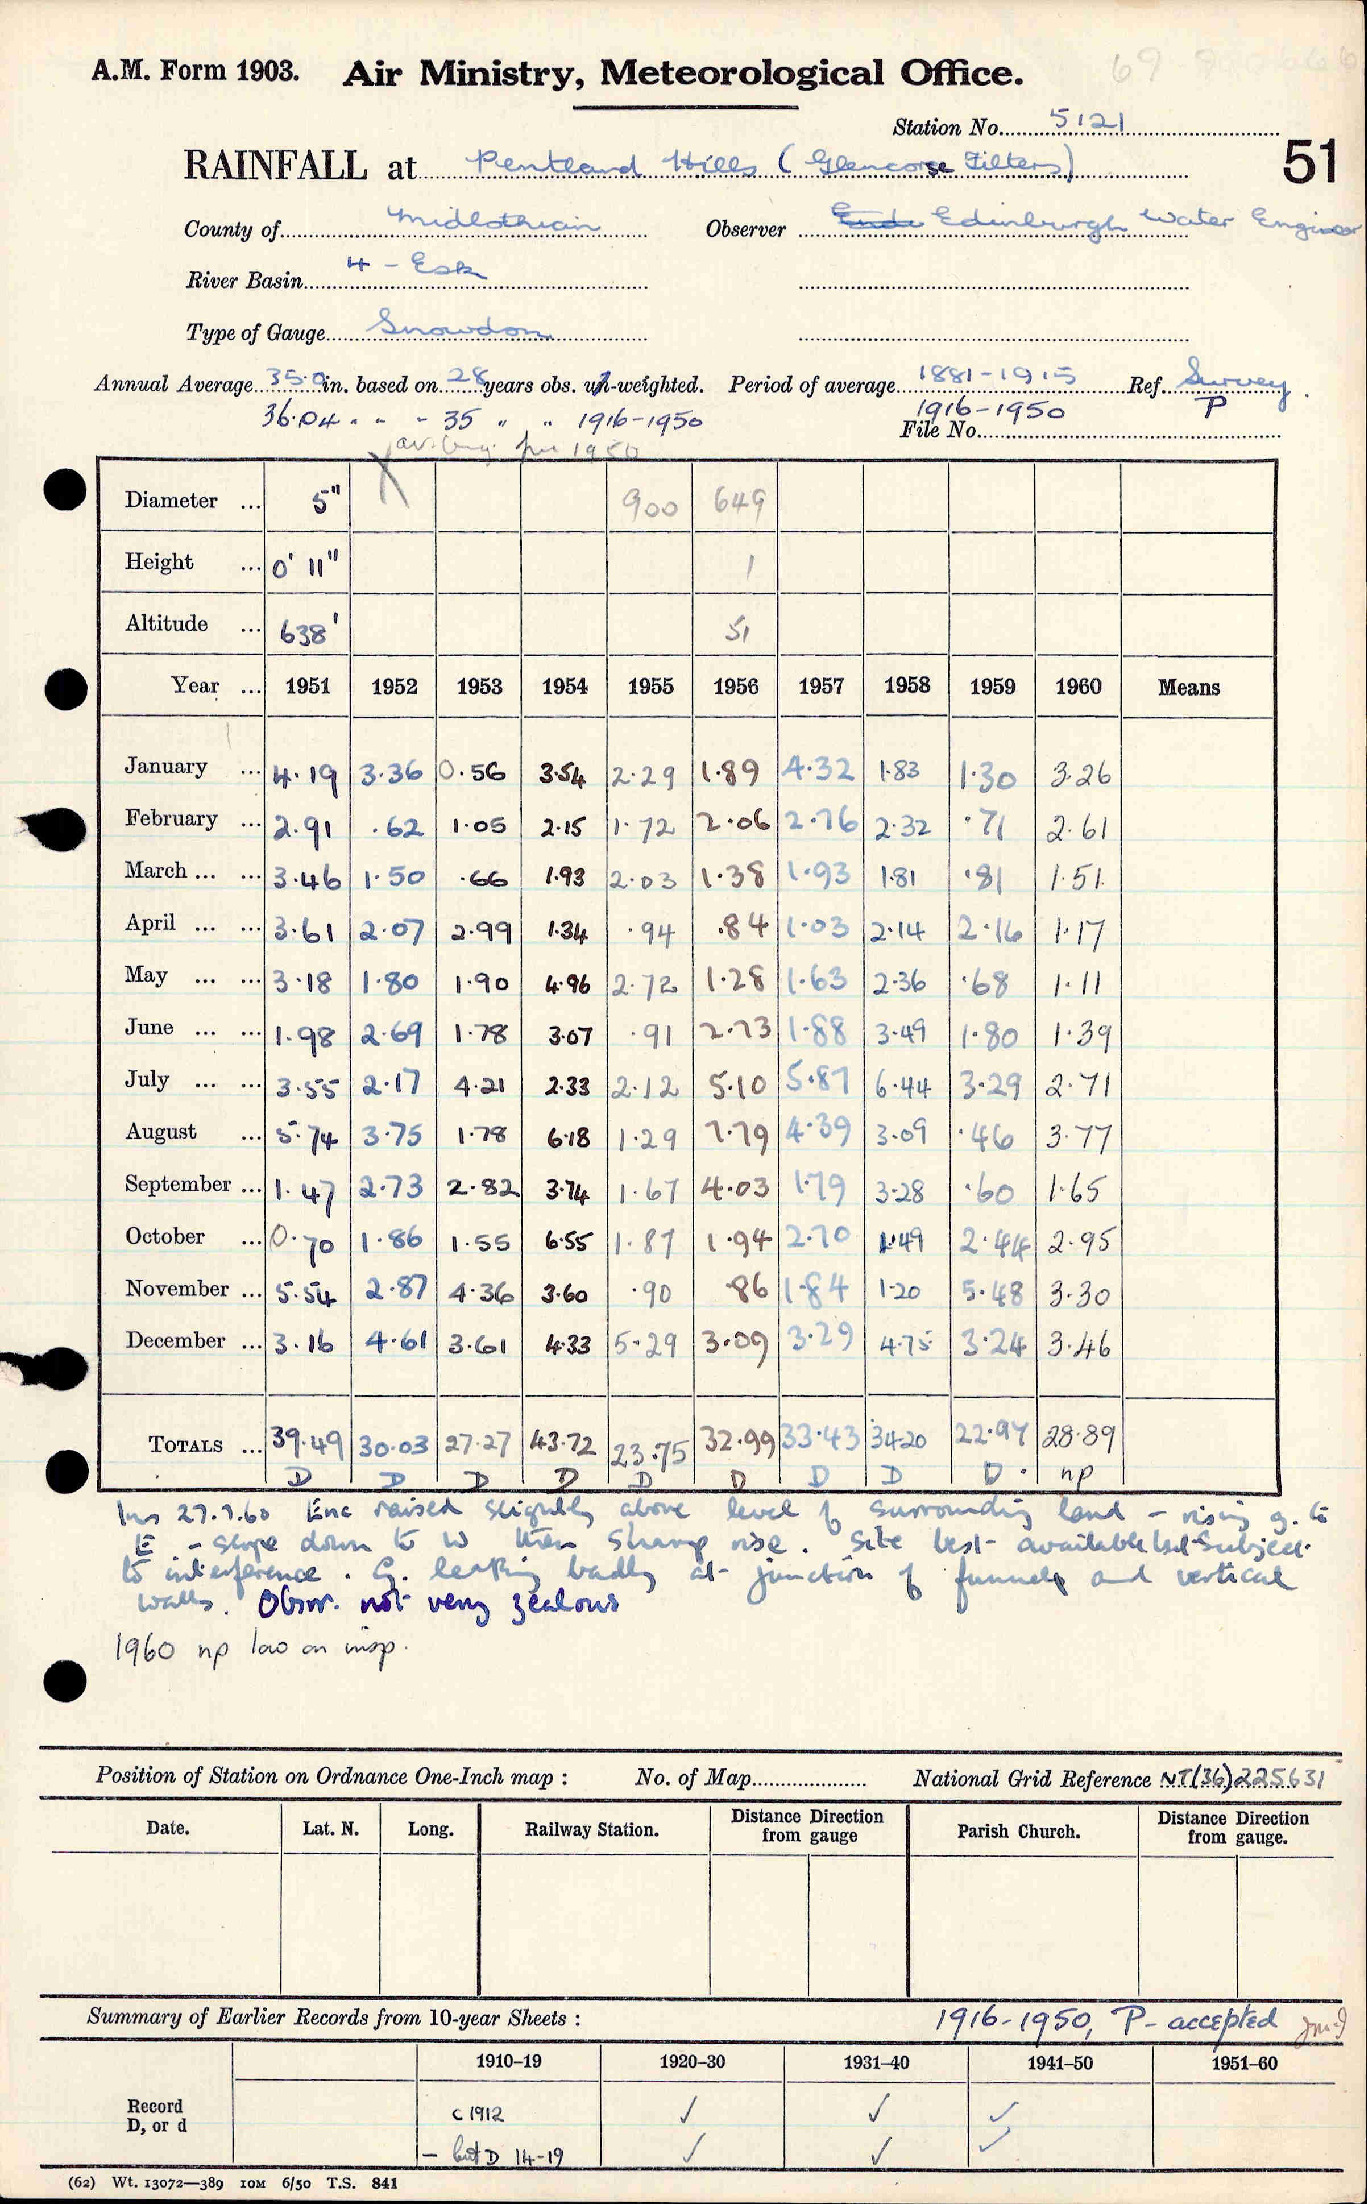 A.M. Form 1903. Air Ministry, Meteorological Office.
Station No. 5121
51
RAINFALL at Pentland Hills (Glencorse Filters)
County of Midlothian Observer Edinburgh Water Engineer
River Basin 4 - Esk
Type of Gauge Snowdon
Annual Average 35.0 in. based on 28 years obs. un-weighted. Period of average 1881-1915 Ref. Survey
36.04 " " - 35 " " 1916-1950 1916-1950 P
File No.
Diameter ... 5" 900 649
Height ... 0' 11" 1
Altitude ... 638' 51
Year ... 1951 1952 1953 1954 1955 1956 1957 1958 1959 1960 Means
January ... 4.19 3.36 0.56 3.54 2.29 1.89 4.32 1.83 1.30 3.26
February ... 2.91 .62 1.05 2.15 1.72 2.06 2.76 2.32 .71 2.61
March ... ... 3.46 1.50 .66 1.93 2.03 1.38 1.93 1.81 .81 1.51
April ... ... 3.61 2.07 2.99 1.34 .94 .84 1.03 2.14 2.16 1.17
May ... ... 3.18 1.80 1.90 4.96 2.72 1.28 1.63 2.36 .68 1.11
June ... ... 1.98 2.69 1.78 3.07 .91 2.73 1.88 3.49 1.80 1.39
July ... ... 3.55 2.17 4.21 2.33 2.12 5.10 5.87 6.44 3.29 2.71
August ... 5.74 3.75 1.78 6.18 1.29 7.79 4.39 3.09 .46 3.77
September ... 1.47 2.73 2.82 3.74 1.67 4.03 1.79 3.28 .60 1.65
October ... 0.70 1.86 1.55 6.55 1.87 1.94 2.70 1.49 2.44 2.95
November ... 5.54 2.87 4.36 3.60 .90 .86 1.84 1.20 5.48 3.30
December ... 3.16 4.61 3.61 4.33 5.29 3.09 3.29 4.75 3.24 3.46
TOTALS ... 39.49 30.03 27.27 43.72 23.75 32.99 33.43 34.20 22.97 28.89
D D D D D D D D D. np
Ins 27.7.60 Enc raised slightly above level of surrounding land - rising g. to
E - slope down to W then sharp rise. Site best available but subject
to interference. G. leaking badly at junction of funnel and vertical
walls. Obsr. not very zealous
1960 np low on insp.
Position of Station on Ordnance One-Inch map : No. of Map National Grid Reference NT(36)225631
Date. Lat. N. Long. Railway Station. Distance Direction from gauge Parish Church. Distance Direction from gauge.
Summary of Earlier Records from 10-year Sheets : 1916-1950, P- accepted
1910-19 1920-30 1931-40 1941-50 1951-60
Record c 1912 ✓ ✓ ✓
D, or d - but D 14-19 ✓ ✓ ✓
(62) Wt. 13072—389 10M 6/50 T.S. 841